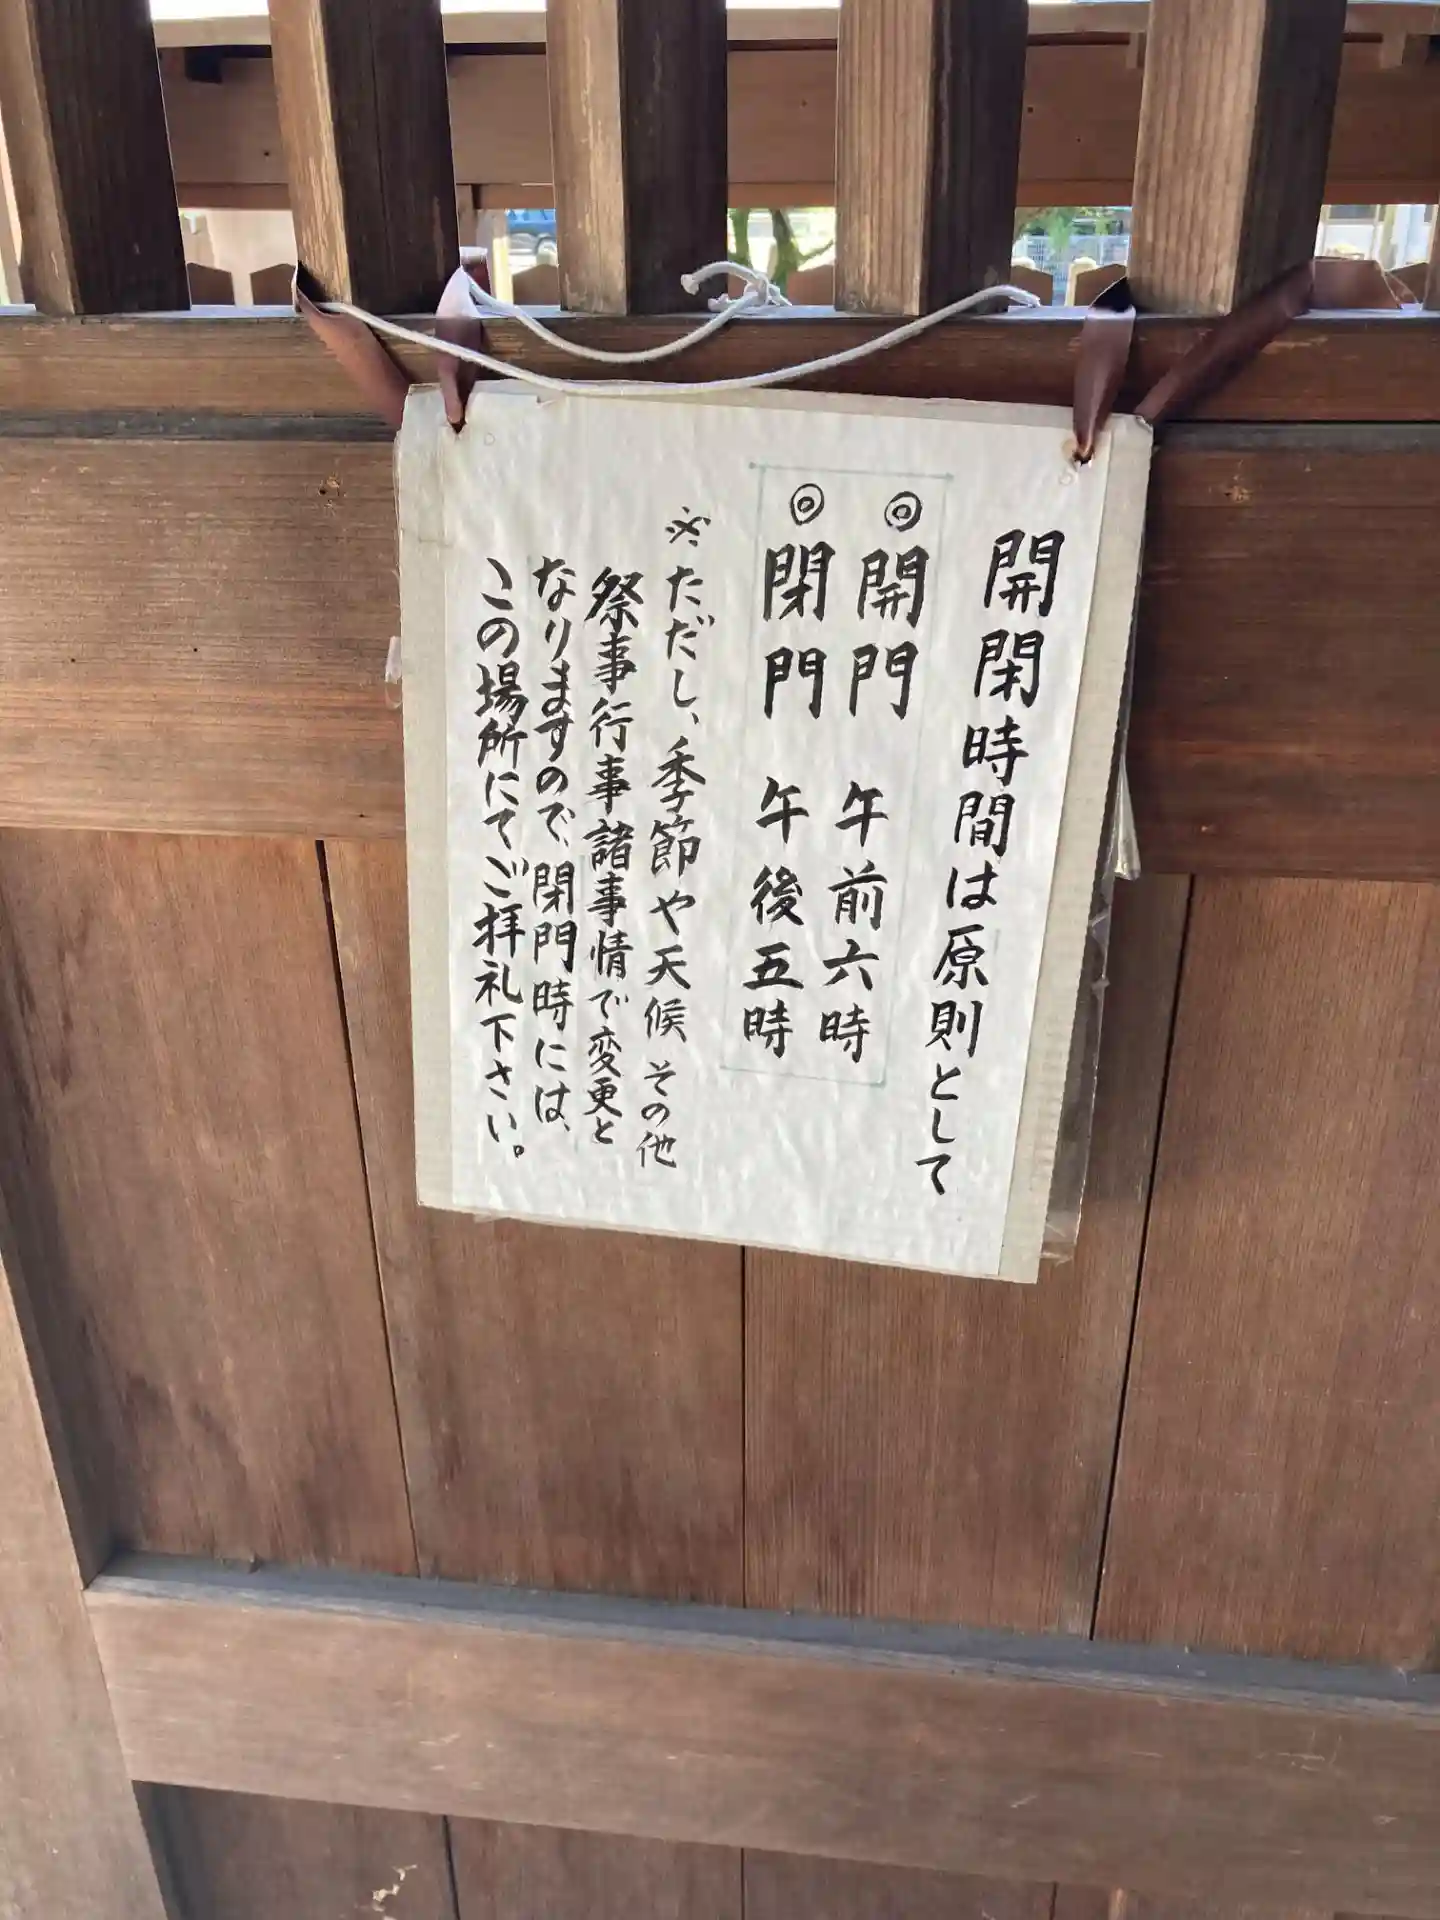 開閉時間は原則として
◎開門 午前六時
◎閉門 午後五時
※ただし、季節や天候その他
祭事行事諸事情で変更と
なりますので、閉門時には、
この場所にてご拝礼下さい。